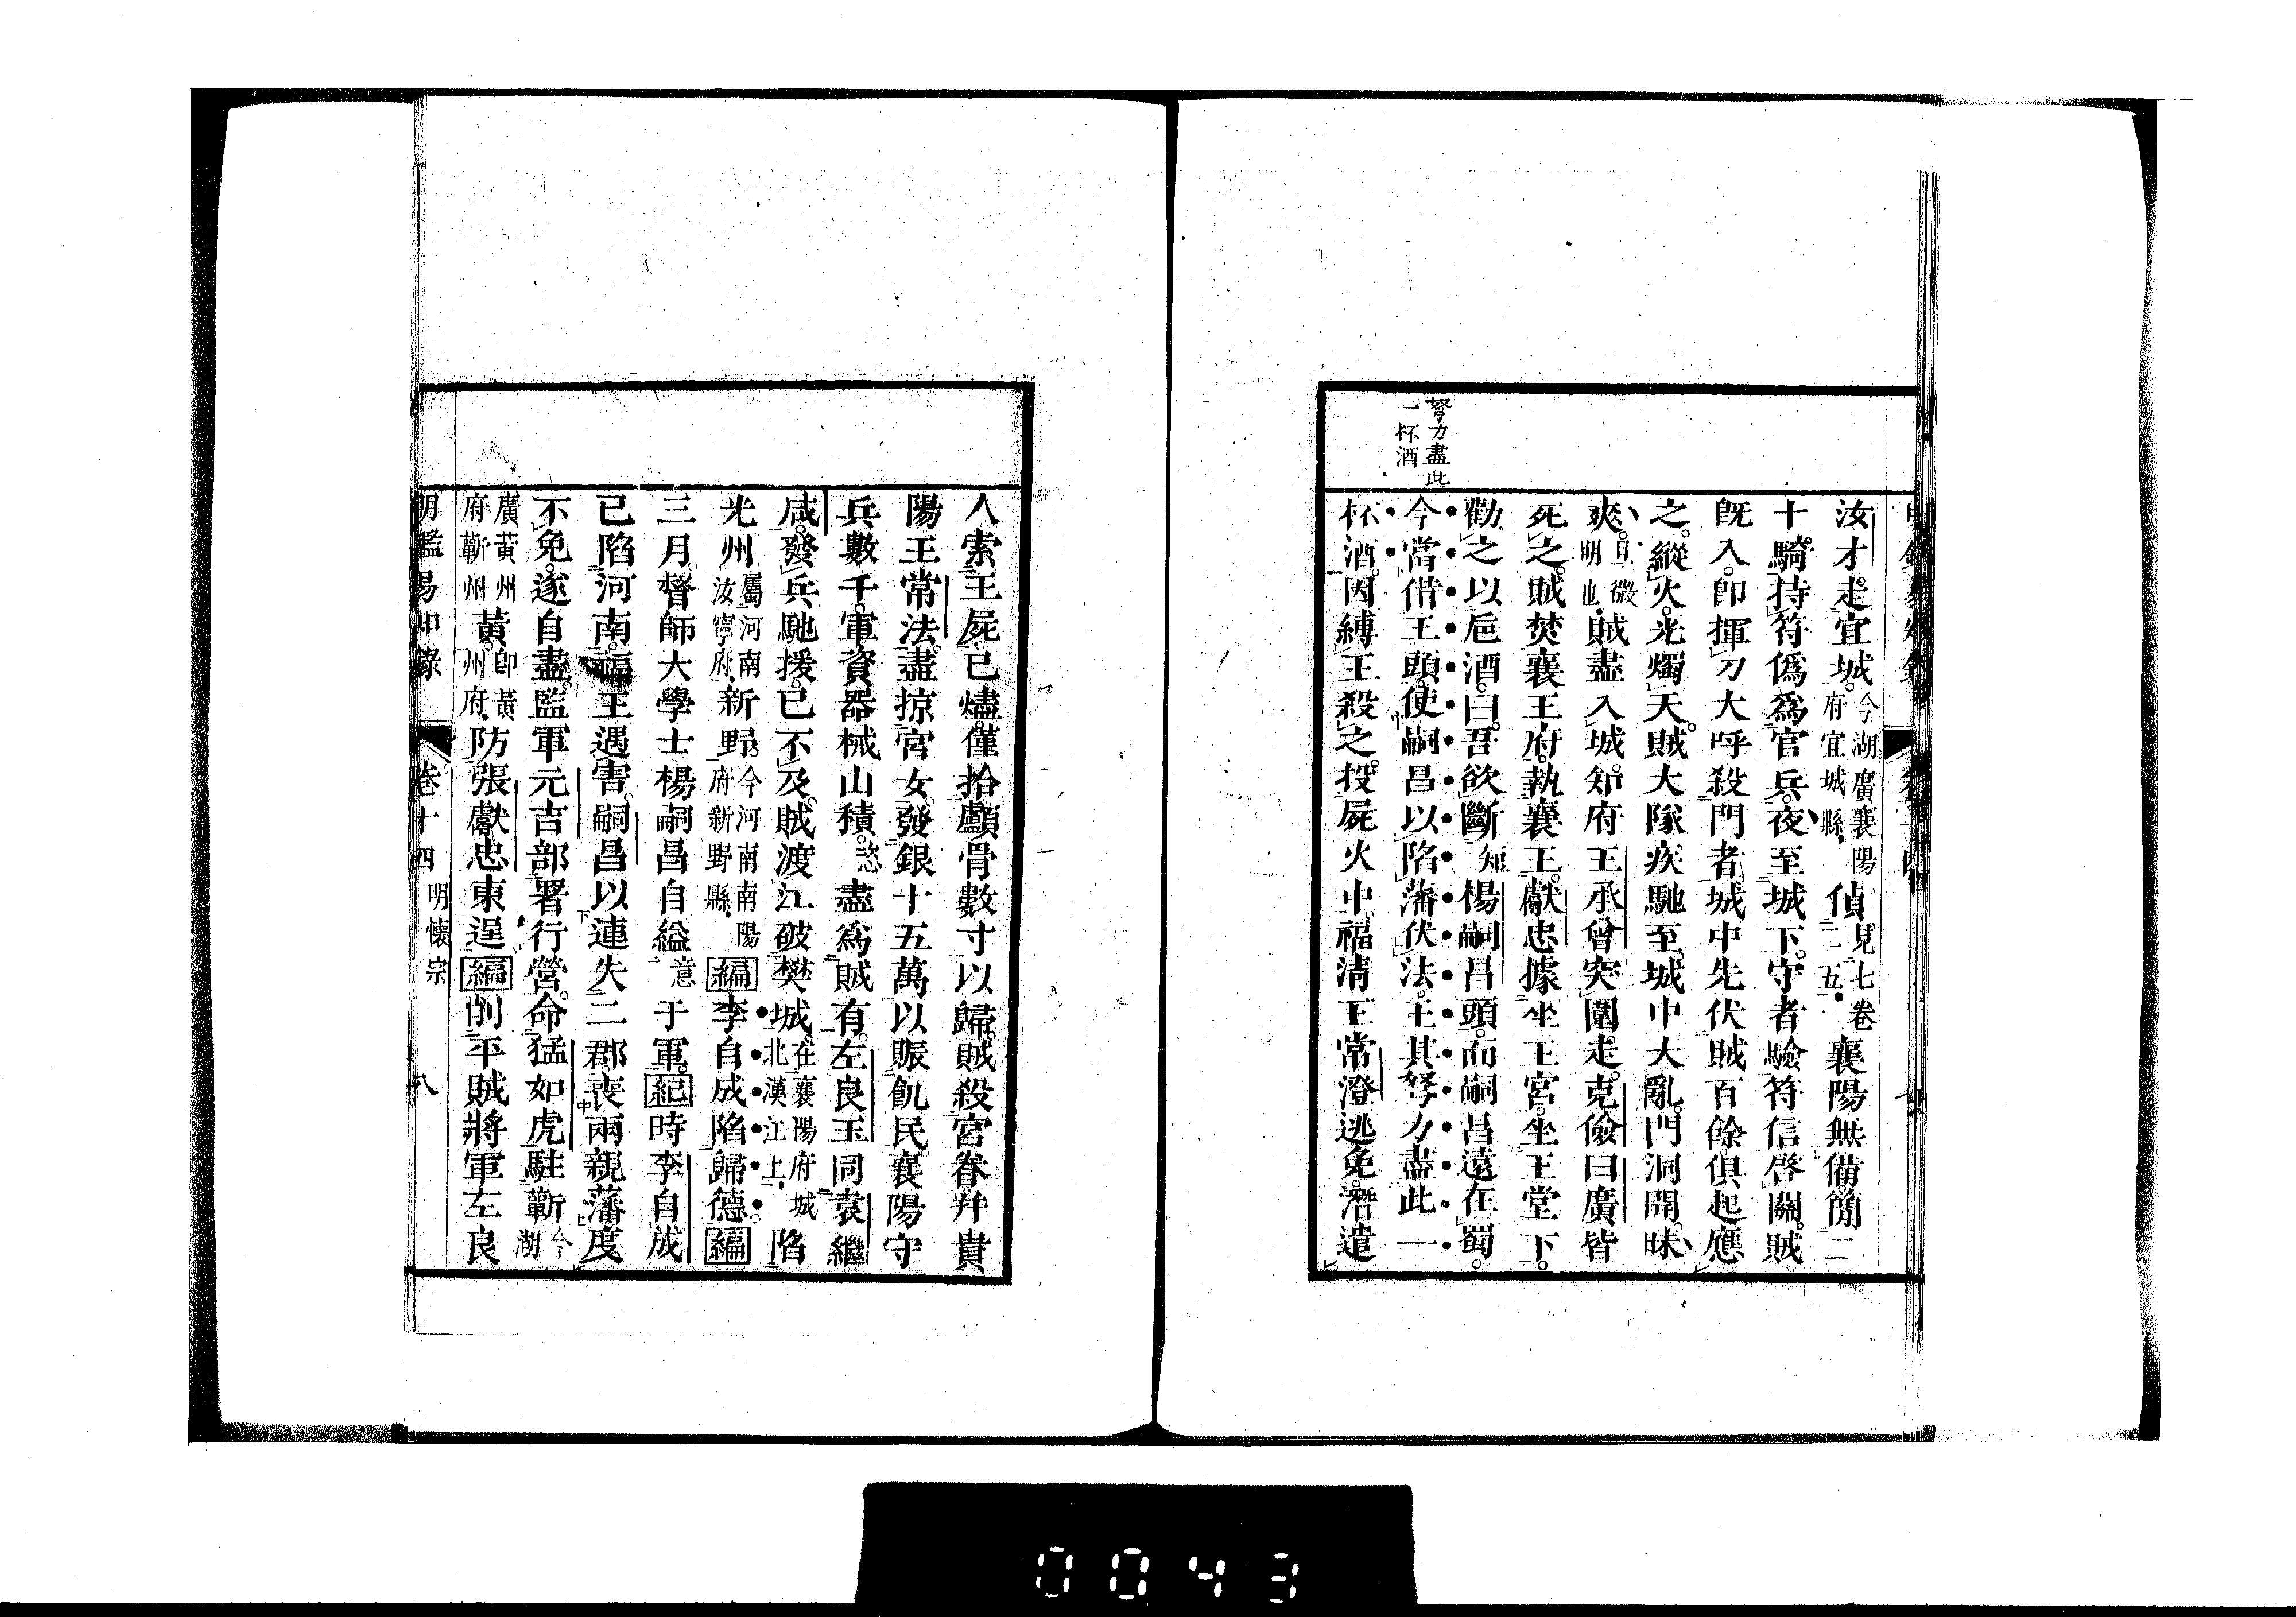 努力盡此
一杯酒
汝才走宜城今湖廣襄陽府宜城縣偵見七卷二五襄陽無備簡二
十騎持符僞爲官兵夜至城下守者驗符信啓關賊
旣入卽揮刀大呼殺門者城中先伏賊百餘俱起應
之縱火光燭天賊大隊疾馳至城中大亂門洞開昧
爽旦微明也賊盡入城知府王承曾突圍走克儉曰廣皆
死之賊焚襄王府執襄王獻忠據坐王宮坐王堂下
勸之以巵酒曰吾欲斷知楊嗣昌頭而嗣昌遠在蜀
今當借王頭使嗣昌以陷藩伏法王其努力盡此一
杯酒因縛王殺之投屍火中福淸王常澄逃免潛遣
人索王屍已燼僅拾顱骨數寸以歸賊殺宮眷幷貴
陽王常法盡掠宮女發銀十五萬以賑飢民襄陽守
兵數千軍資器械山積恣盡爲賊有左良玉同袁繼
咸發兵馳援已不及賊渡江破樊城在襄陽府城北漢江上陷
光州屬河南汝寧府新野今河南南陽府新野縣編李自成陷歸德編
三月督師大學士楊嗣昌自縊意于軍紀時李自成
已陷河南福王遇害嗣昌以連失二郡喪兩親藩度
不免遂自盡監軍元吉部署行營命猛如虎駐蘄今湖
廣黃州府蘄州黃卽黃州府防張獻忠東逞編削平賊將軍左良
明鑑易知錄 卷十四 明懷宗 八
0043